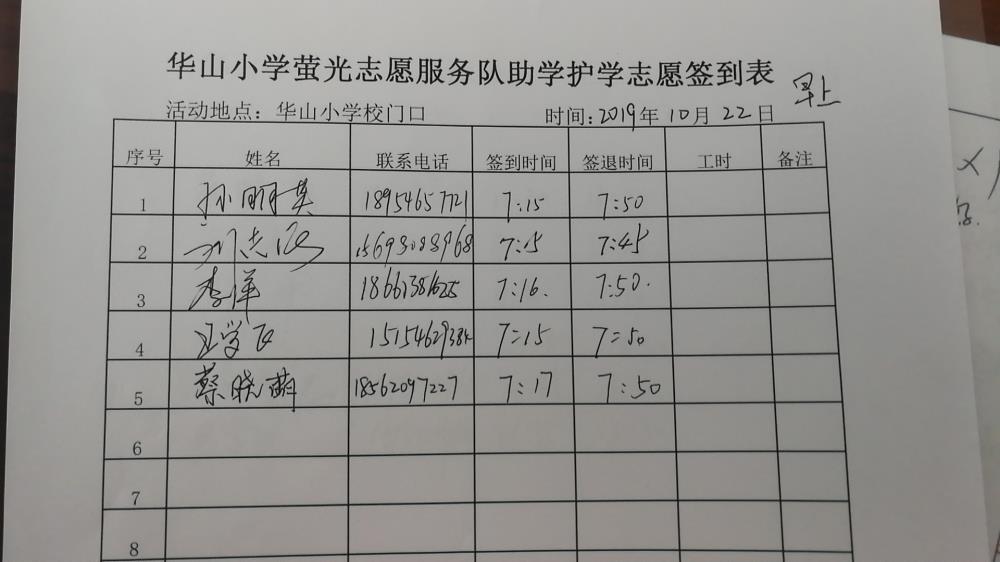 华山小学萤光志愿服务队助学护学志愿签到表
早上
活动地点：华山小学校门口 时间：2019年10月22日
序号 姓名 联系电话 签到时间 签退时间 工时 备注
1 孙丽英 18954657721 7:15 7:50
2 刘志海 15693088968 7:15 7:45
3 李洋 18661381625 7:16. 7:50.
4 学飞 7:15 7:50
5 蔡晓萌 18562097227 7:17 7:50
6
7
8